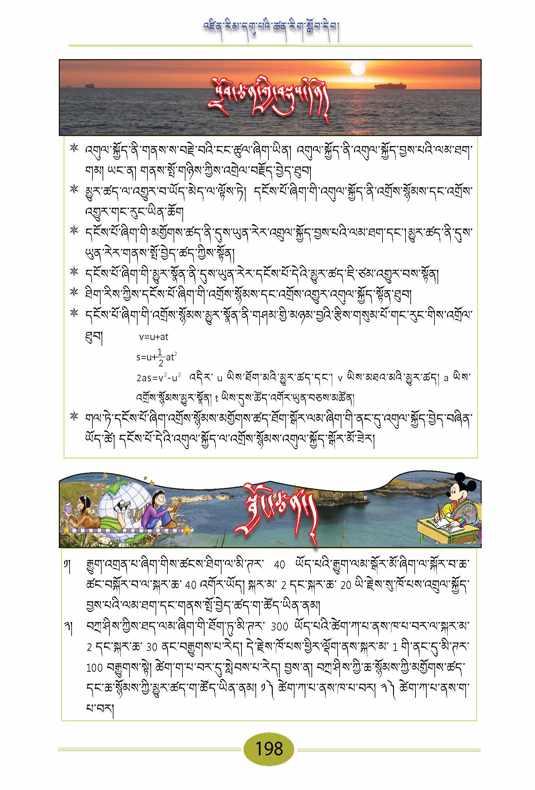 འཛིན་རིམ་དགུ་པའི་ཚན་རིག་སློབ་དེབ།
* འགུལ་སྐྱོད་ནི་གནས་ས་བརྗེ་བའི་ངང་ཚུལ་ཞིག་ཡིན། འགུལ་སྐྱོད་ནི་འགུལ་སྐྱོད་བྱས་པའི་ལམ་ཐག་
གམ། ཡང་ན། གནས་སྤོ་གཉིས་ཀྱིས་འགྲེལ་བརྗོད་བྱེད་ཐུབ།
* མྱུར་ཚད་ལ་འགྱུར་བ་ཡོད་མེད་ལ་ལྟོས་ཏེ། དངོས་པོ་ཞིག་གི་འགུལ་སྐྱོད་ནི་འགྲོས་སྙོམས་དང་འགྲོས་
འགྱུར་གང་རུང་ཡིན་ཆོག
* དངོས་པོ་ཞིག་གི་མགྱོགས་ཚད་ནི་དུས་ཡུན་རེར་འགུལ་སྐྱོད་བྱས་པའི་ལམ་ཐག་དང་། མྱུར་ཚད་ནི་དུས་
ཡུན་རེར་གནས་སྤོ་བྱེད་ཚད་ཀྱིས་སྟོན།
* དངོས་པོ་ཞིག་གི་མྱུར་སྣོན་ནི་དུས་ཡུན་རེར་དངོས་པོ་དེའི་མྱུར་ཚད་ཇི་ཙམ་འགྱུར་བས་སྟོན།
* ཐིག་རིས་ཀྱིས་དངོས་པོ་ཞིག་གི་འགྲོས་སྙོམས་དང་འགྲོས་འགྱུར་འགུལ་སྐྱོད་སྟོན་ཐུབ།
* དངོས་པོ་ཞིག་གི་འགྲོས་སྙོམས་མྱུར་སྣོན་ནི་གཤམ་གྱི་མཉམ་བྱའི་རྩིས་གསུམ་པོ་གང་རུང་གིས་འགྲོལ་
ཐུབ། v=u+at
s=u+½at²
2as=v²-u² འདིར་ u ཡིས་ཐོག་མའི་མྱུར་ཚད་དང་། v ཡིས་མཐའ་མའི་མྱུར་ཚད། a ཡིས་
འགྲོས་སྙོམས་མྱུར་སྣོན། t ཡིས་དུས་ཚོད་འགོར་ཡུན་བཅས་མཚོན།
* གལ་ཏེ་དངོས་པོ་ཞིག་འགྲོས་སྙོམས་མགྱོགས་ཚད་ཐོག་སྒོར་ལམ་ཞིག་གི་ནང་དུ་འགུལ་སྐྱོད་བྱེད་བཞིན་
ཡོད་ཚེ། དངོས་པོ་དེའི་འགུལ་སྐྱོད་ལ་འགྲོས་སྙོམས་འགུལ་སྐྱོད་སྒོར་མོ་ཟེར།
༡། རྒྱུག་འགྲན་པ་ཞིག་གིས་ཚངས་ཐིག་ལ་མི་ཊར་ 40 ཡོད་པའི་རྒྱུག་ལམ་སྒོར་མོ་ཞིག་ལ་སྐོར་བ་ཆ་
ཚང་བསྐོར་བ་ལ་སྐར་ཆ་ 40 འགོར་ཡོད། སྐར་མ་ 2 དང་སྐར་ཆ་ 20 ཡི་རྗེས་སུ་ཁོ་པས་འགུལ་སྐྱོད་
བྱས་པའི་ལམ་ཐག་དང་གནས་སྤོ་བྱེད་ཚད་ག་ཚོད་ཡིན་ནམ།
༢། བཀྲ་ཤིས་ཀྱིས་ཐད་ལམ་ཞིག་གི་ཐོག་ཏུ་མི་ཊར་ 300 ཡོད་པའི་ཚེག་ཀ་པ་ནས་ཁ་པ་བར་ལ་སྐར་མ་
2 དང་སྐར་ཆ་ 30 ནང་བརྒྱུགས་པ་རེད། དེ་རྗེས་ཁོ་པས་ཕྱིར་ལྡོག་ནས་སྐར་མ་ 1 གི་ནང་དུ་མི་ཊར་
100 བརྒྱུགས་སྟེ། ཚེག་ག་པ་བར་དུ་སླེབས་པ་རེད། བྱས་ན། བཀྲ་ཤིས་ཀྱི་ཆ་སྙོམས་ཀྱི་མགྱོགས་ཚད་
དང་ཆ་སྙོམས་ཀྱི་མྱུར་ཚད་ག་ཚོད་ཡིན་ནམ། ༡༽ ཚེག་ཀ་པ་ནས་ཁ་པ་བར། ༢༽ ཚེག་ཀ་པ་ནས་ག་
པ་བར།
198